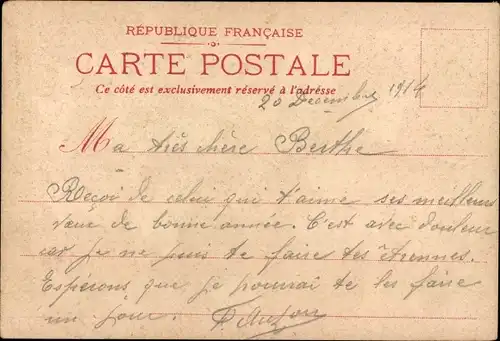 RÉPUBLIQUE FRANÇAISE
CARTE POSTALE
Ce côté est exclusivement réservé à l'adrèsse
20 Decembre 1914
Ma très chère Berthe
Reçoi de celui qui t'aime ses meilleurs
vœux de bonne année. C'est avec douleur
car je ne puis te faire tes étrennes.
Espérons que je pourrai te les faire
un jour.